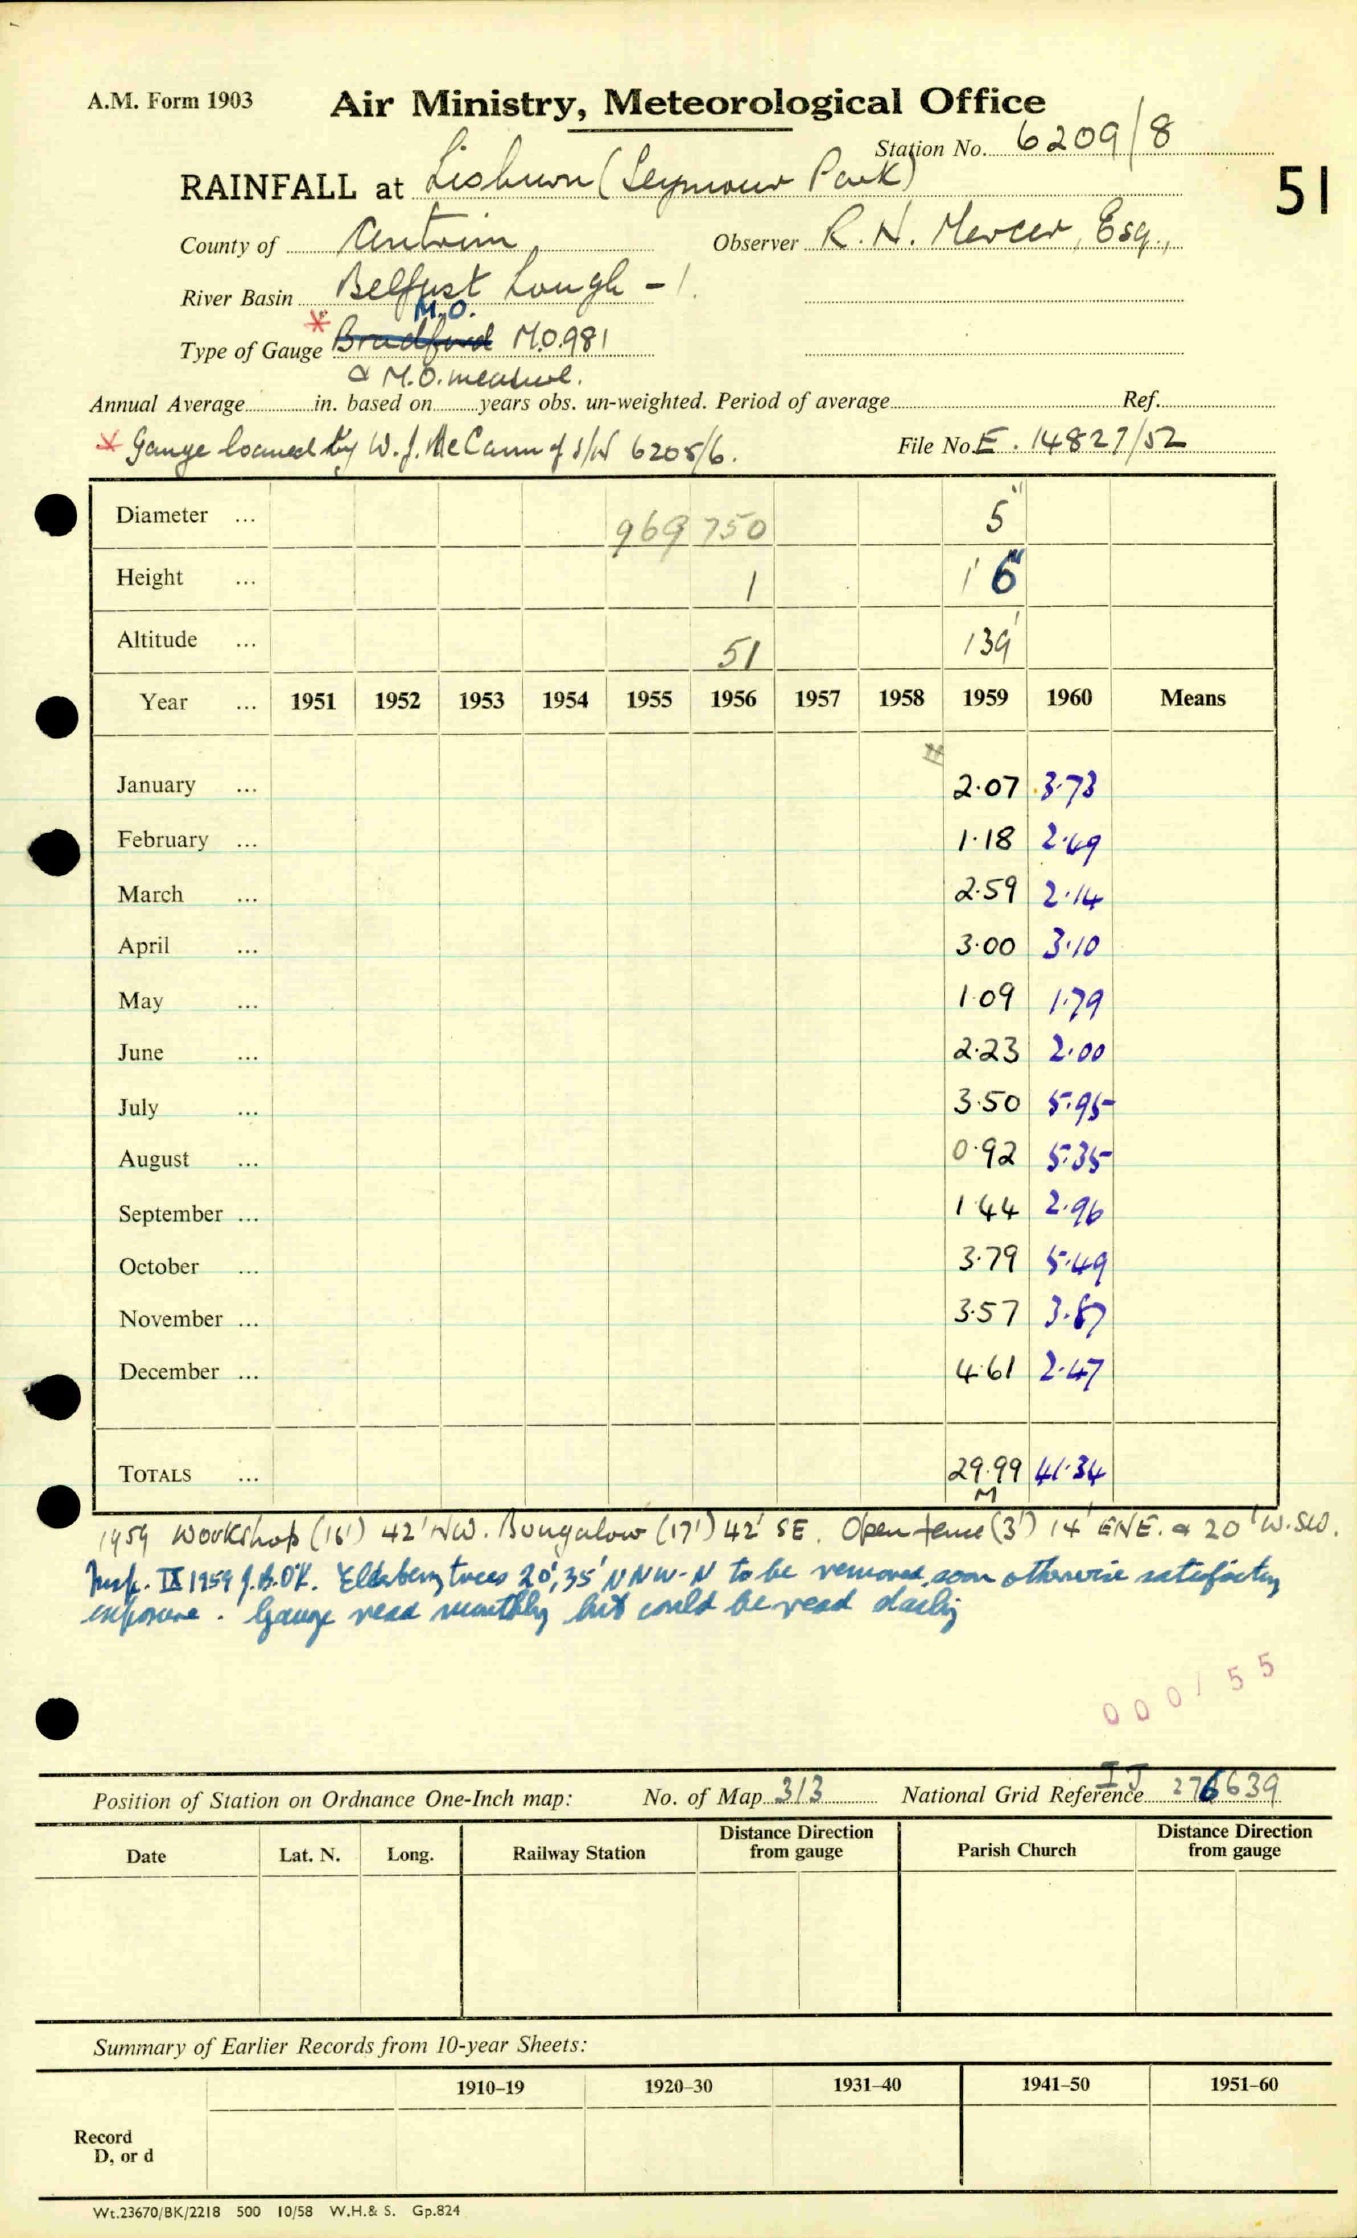 A.M. Form 1903
Air Ministry, Meteorological Office
Station No. 6209/8
51
RAINFALL at Lisburn (Seymour Park)
County of Antrim
Observer R. H. Mercer, Esq.,
River Basin Belfast Lough - 1.
M.O.
* Type of Gauge Bradford M.O.981
& M.O. measure.
Annual Average in. based on years obs. un-weighted. Period of average Ref.
* Gauge loaned by W. J. McCann of S/N 6205/6.
File No. E. 14827/52
Diameter ... 969 750 5"
Height ... 1 1' 6"
Altitude ... 51 139'
Year ... 1951 1952 1953 1954 1955 1956 1957 1958 1959 1960 Means
January ... 2.07 3.73
February ... 1.18 2.49
March ... 2.59 2.14
April ... 3.00 3.10
May ... 1.09 1.79
June ... 2.23 2.00
July ... 3.50 5.95
August ... 0.92 5.35
September ... 1.44 2.96
October ... 3.79 5.49
November ... 3.57 3.87
December ... 4.61 2.47
TOTALS ... 29.99 41.34
M
1959 Workshop (16') 42' NW. Bungalow (17') 42' SE. Open fence (3') 14' ENE. & 20' W.SW.
Insp. IX 1959 J.B.O'K. Elderberry trees 20', 35' NNW-N to be removed soon otherwise satisfactory
exposure. Gauge read monthly but could be read daily
000155
Position of Station on Ordnance One-Inch map: No. of Map 313 National Grid Reference IJ 276639
Date Lat. N. Long. Railway Station Distance Direction from gauge Parish Church Distance Direction from gauge
Summary of Earlier Records from 10-year Sheets:
1910–19 1920–30 1931–40 1941–50 1951–60
Record
D, or d
Wt.23670/BK/2218 500 10/58 W.H.& S. Gp.824